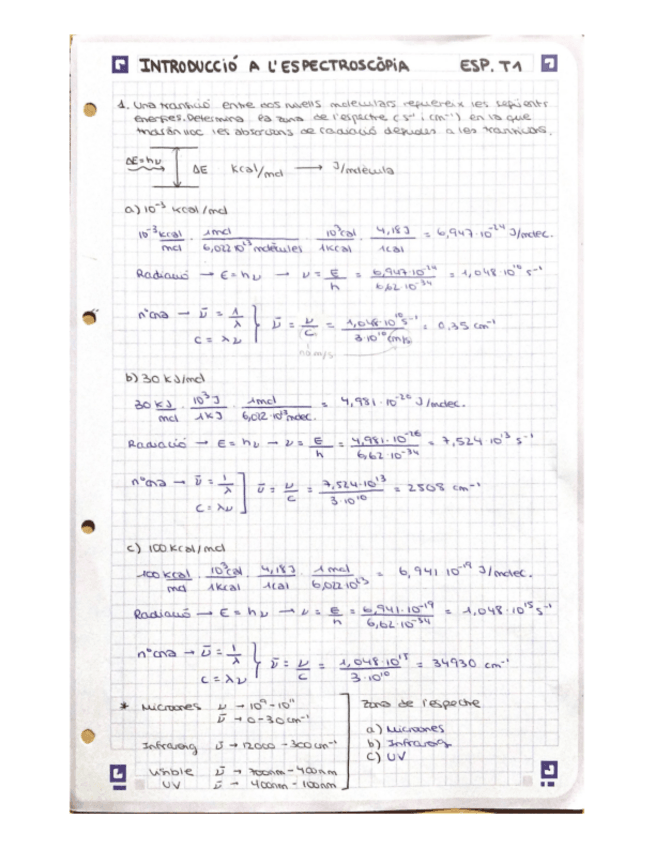 INTRODUCCIÓ A L'ESPECTROSCÒPIA ESP. T1
1. Una transició entre dos nivells moleculars requereix les següents
energies. Determina la zona de l'espectre (s⁻¹ i cm⁻¹) en la que
tindràn lloc les absorcions de radiació degudes a les transicions.
ΔE=hν ΔE Kcal/mol → J/molècula
a) 10⁻³ kcal/mol
10⁻³ kcal/mol · 1mol/6,022·10²³ molècules · 10³cal/1Kcal · 4,18J/1cal = 6,947·10⁻²⁴ J/molec.
Radiació → E = hν → ν = E/h = 6,947·10⁻²⁴/6,62·10⁻³⁴ = 1,048·10¹⁰ s⁻¹
nºona → ν̄ = 1/λ
c = λν } ν̄ = ν/c = 1,048·10¹⁰ s⁻¹/3·10¹⁰ cm/s = 0,35 cm⁻¹
no m/s
b) 30 kJ/mol
30 kJ/mol · 10³J/1kJ · 1mol/6,022·10²³ molec. = 4,981·10⁻²⁰ J/molec.
Radiació → E = hν → ν = E/h = 4,981·10⁻²⁰/6,62·10⁻³⁴ = 7,524·10¹³ s⁻¹
nºona → ν̄ = 1/λ
c = λν ] ν̄ = ν/c = 7,524·10¹³/3·10¹⁰ = 2508 cm⁻¹
c) 100 Kcal/mol
100 Kcal/mol · 10³cal/1Kcal · 4,18J/1cal · 1mol/6,022·10²³ = 6,941·10⁻¹⁹ J/molec.
Radiació → E = hν → ν = E/h = 6,941·10⁻¹⁹/6,62·10⁻³⁴ = 1,048·10¹⁵ s⁻¹
nºona → ν̄ = 1/λ
c = λν } ν̄ = ν/c = 1,048·10¹⁵/3·10¹⁰ = 34930 cm⁻¹
* Microones ν → 10⁹-10¹¹
ν̄ → 0-30 cm⁻¹
Infraroig ν̄ → 12000 - 300 cm⁻¹
Visible ν̄ → 700nm - 400nm
UV ν̄ → 400nm - 100nm
Zona de l'espectre
a) Microones
b) Infraroig
c) UV